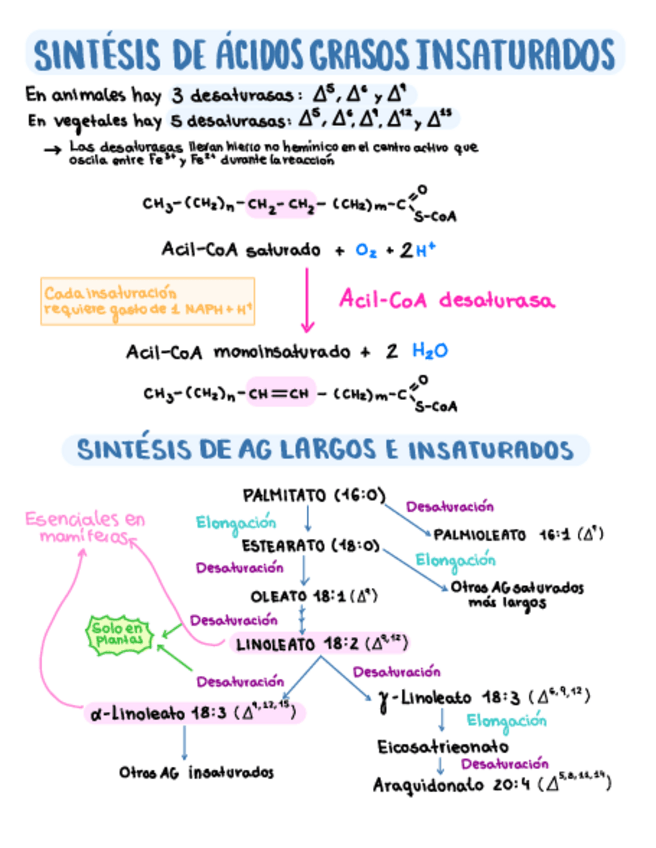 SINTÉSIS DE ÁCIDOS GRASOS INSATURADOS
En animales hay 3 desaturasas: Δ⁵, Δ⁶ y Δ⁹
En vegetales hay 5 desaturasas: Δ⁵, Δ⁶, Δ⁹, Δ¹² y Δ¹⁵
→ Las desaturasas llevan hierro no hemínico en el centro activo que
oscila entre Fe³⁺ y Fe²⁺ durante la reacción
CH₃-(CH₂)n-CH₂-CH₂-(CH₂)m-C
O
S-CoA
Acil-CoA saturado + O₂ + 2H⁺
Cada insaturación
requiere gasto de 1 NAPH + H⁺
Acil-CoA desaturasa
Acil-CoA monoinsaturado + 2 H₂O
CH₃-(CH₂)n-CH=CH-(CH₂)m-C
O
S-CoA
SINTÉSIS DE AG LARGOS E INSATURADOS
PALMITATO (16:0)
Desaturación
Esenciales en
mamíferos
Elongación
PALMIOLEATO 16:1 (Δ⁹)
ESTEARATO (18:0)
Elongación
Desaturación
Otros AG saturados
más largos
OLEATO 18:1 (Δ⁹)
Desaturación
Solo en
plantas
LINOLEATO 18:2 (Δ⁹,¹²)
Desaturación
Desaturación
α-Linoleato 18:3 (Δ⁹,¹²,¹⁵)
γ-Linoleato 18:3 (Δ⁶,⁹,¹²)
Elongación
Eicosatrieonato
Desaturación
Otros AG insaturados
Araquidonato 20:4 (Δ⁵,⁸,¹¹,¹⁴)